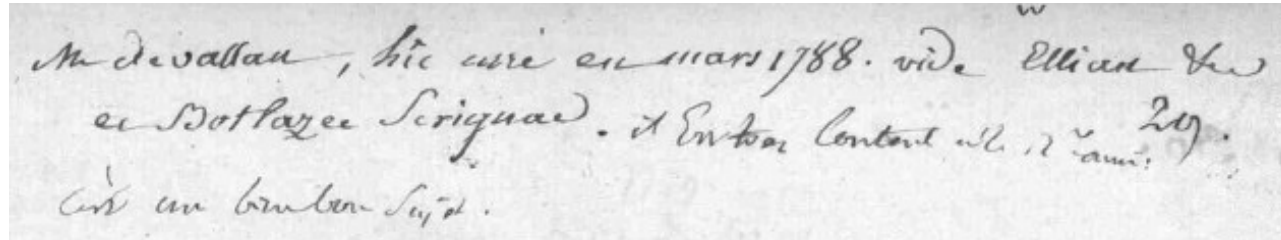 Mr devallau, hic curé en mars 1788. vide Elliant &
et Botlazec Scrignac. il En est Content 29.
c'est un bon bon Sujet.